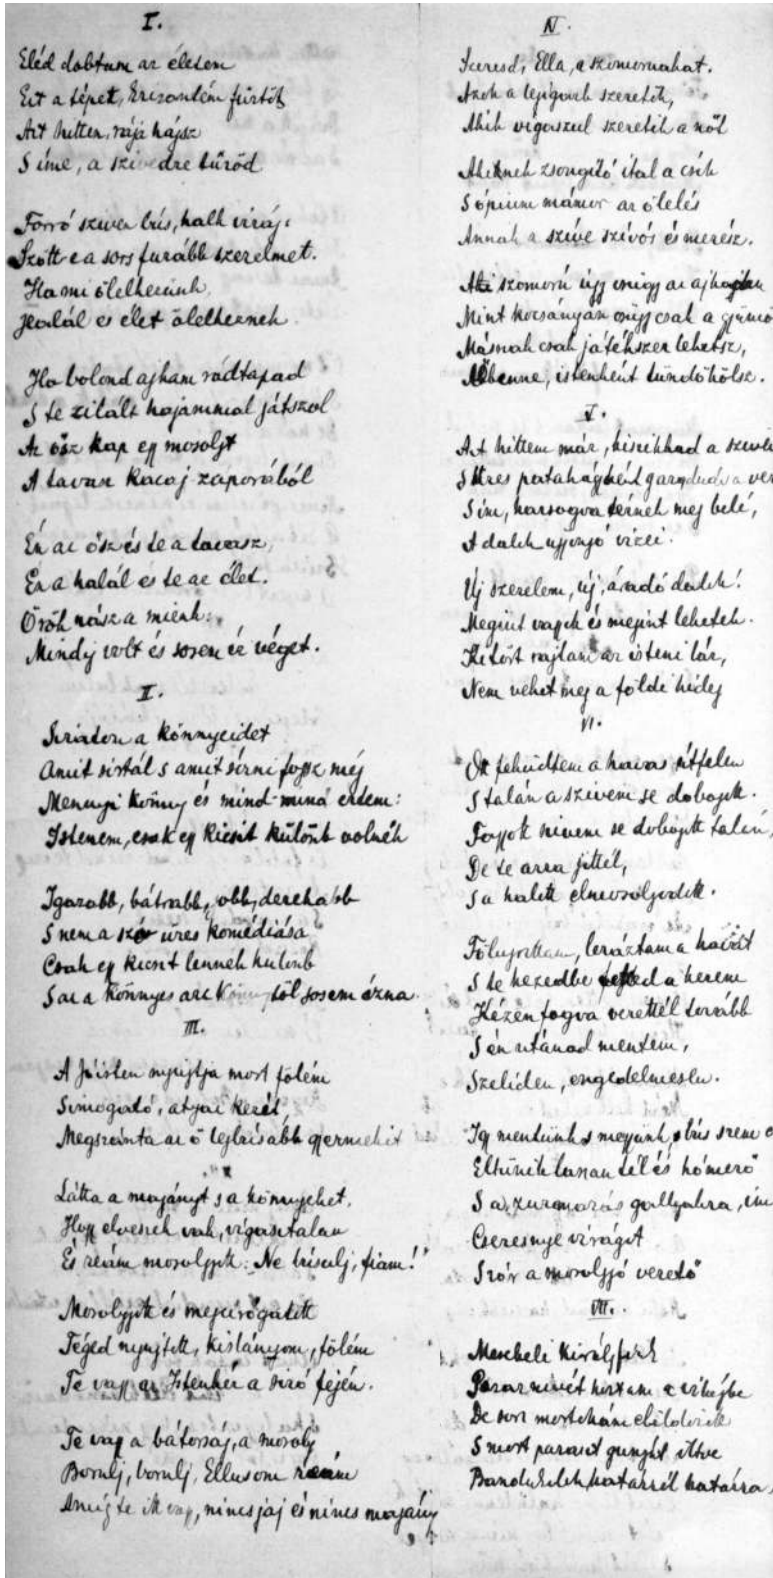 I.
Eléd dobtam az életem
Ezt a tépett, krizantém fürtöt
Azt hittem, rája hájsz
S íme, a szivedre tűzöd
Forró sziven bús, halk virág.
Szőtt-e a sors furább szerelmet.
Ha mi ölelkezünk
Halál és élet ölelkeznek
Ha bolond ajkam rádtapad
S te zilált hajammal játszol
Az ősz kap egy mosolyt
A tavasz kacaj-záporából
Én az ősz és te a tavasz,
Én a halál és te az élet.
Örök nász a miénk:
Mindíg volt és sosem ér véget.
II.
Siratom a könnyeidet
Amit sirtál s amit sírni fogsz még
Mennyi könny és mind-mind értem:
Istenem, csak egy kicsit különb volnék
Igazabb, bátrabb, jobb, derekabb
S nem a szó üres komédiása
Csak egy kicsit lennék különb
S az a könnyes arc könnytől sosem ázna.
III.
A Jóisten nyujtja most fölém
Simogató, atyai kezét,
Megszánta az ő legbúsabb gyermekét
Látta a magányt s a könnyeket.
Hogy elveszek vak, vigasztalan
És reám mosolygott: Ne búsulj, fiam!"
Mosolygott és megcirógatott
Téged nyujtott, kislányom, fölém
Te vagy az Istenkéz a síró fején.
Te vagy a bátorság, a mosoly
Borulj, borulj, Ellusom reám
Amíg te itt vagy, nincs jaj és nincs magány
IV.
Szeresd, Ella, a szomorúakat.
Azok a legigazabb szeretők,
Akik vígaszul szeretik a nőt
Akiknek zsongító ital a csók
S ópium mámor az ölelés
Annak a szíve szívós és merész.
Aki szomorú úgy csügg az ajkadon
Mint kocsányán csügg csak a gyümöl
Másnak csak játékszer lehetsz,
Őbenne, istenként tündökölsz.
V.
Azt hittem már, kiszikkad a szivem
S üres patakágyként garadudva ver
S ím, harsogva térnek meg belé,
A dalok ujjongó vizei.
Új szerelem, új, áradó dalok!
Megint vagyok és megint lehetek.
Kitört rajtam az isteni láz,
Nem vehet meg a földi hideg
VI.
Ott feküdtem a havas útfélen
S talán a szivem se dobogott.
Fagyott szivem se dobogott talán,
De te arra jöttél,
S a halott elmosolyodott.
Fölugrottam, leráztam a havát
S te kezedbe tetted a kezem
Kézen fogva vezettél tovább
S én utánad mentem,
Szeliden, engedelmesen.
Igy mentünk s megyünk, s bús szeme
Eltünik lassan tél és hómező
S a zuzmarás gallyakra, ím
Cseresnye virágot
Szór a mosolygó verető
VII.
Mesebeli királyfiak
De sors mostohám
S most paraszt gunyát öltve
határról határra